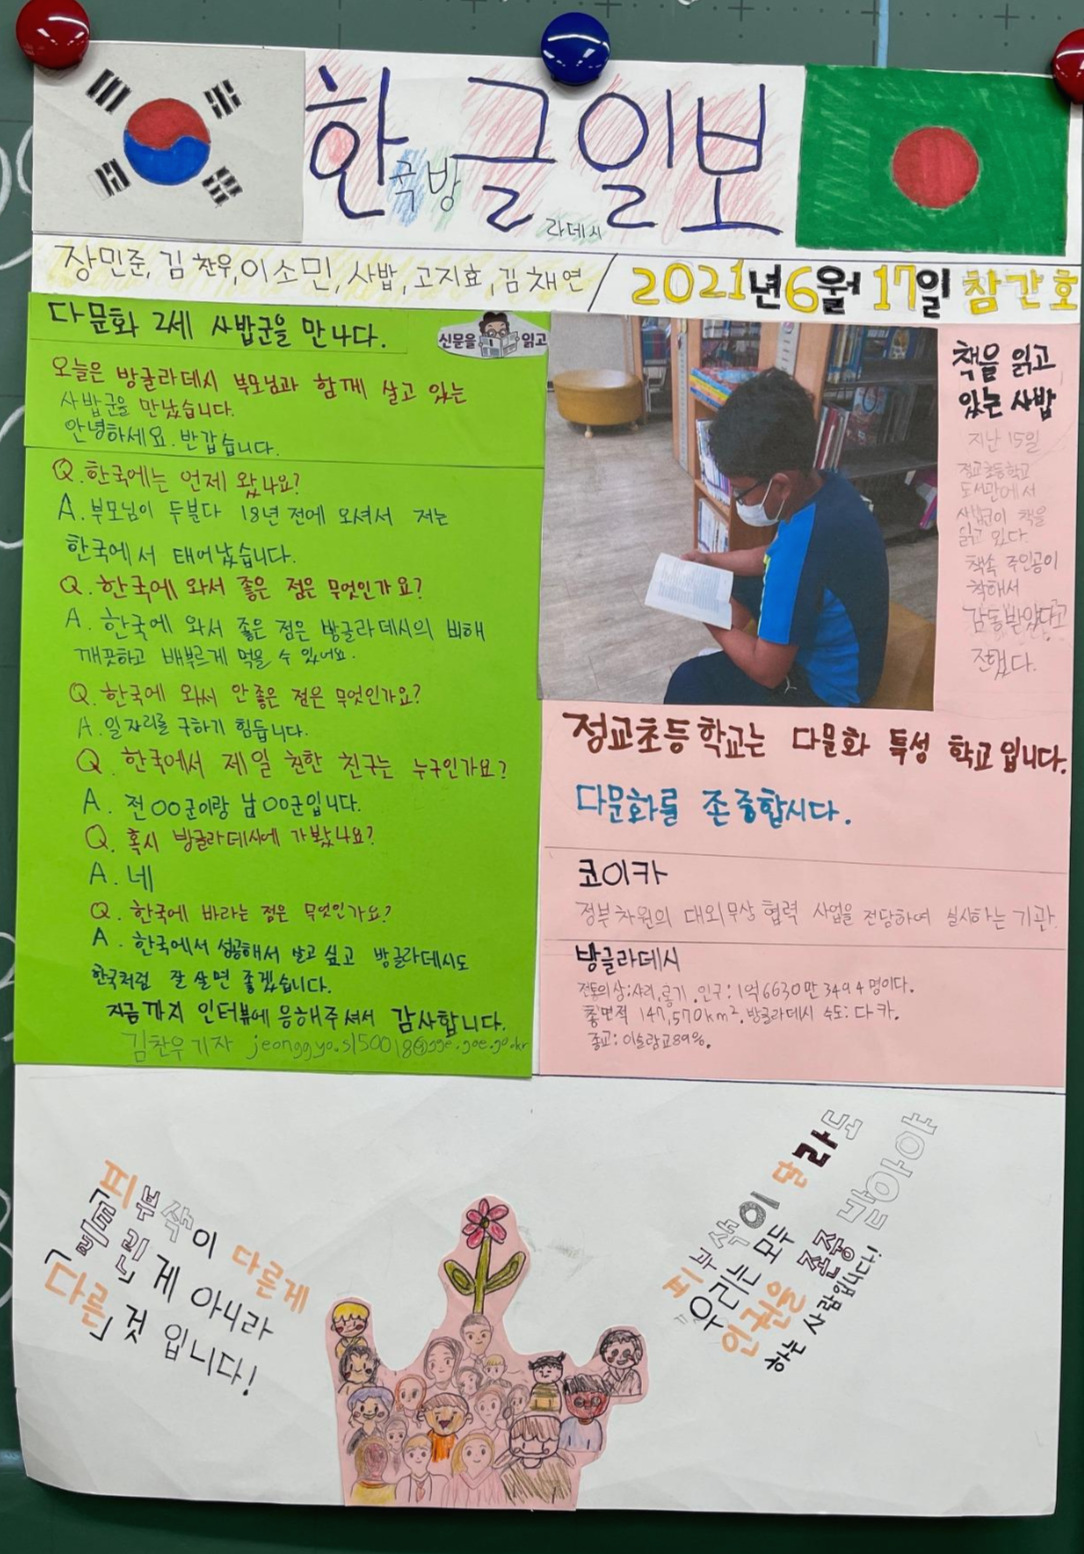 한글일보
국방
라데시
장민준, 김찬우, 이소민, 사밥, 고지효, 김채연 / 2021년 6월 17일 참간호
다문화 2세 사밥군을 만나다.
신문을 읽고
오늘은 방글라데시 부모님과 함께 살고 있는
사밥군을 만났습니다.
안녕하세요. 반갑습니다.
Q. 한국에는 언제 왔나요?
A. 부모님이 두분다 18년 전에 오셔서 저는
한국에서 태어났습니다.
Q. 한국에 와서 좋은 점은 무엇인가요?
A. 한국에 와서 좋은 점은 방글라데시의 비해
깨끗하고 배부르게 먹을 수 있어요.
Q. 한국에 와서 안 좋은 점은 무엇인가요?
A. 일자리를 구하기 힘듭니다.
Q. 한국에서 제일 친한 친구는 누구인가요?
A. 전OO군이랑 남OO군입니다.
Q. 혹시 방글라데시에 가봤나요?
A. 네
Q. 한국에 바라는 점은 무엇인가요?
A. 한국에서 성공해서 살고 싶고 방글라데시도
한국처럼 잘 살면 좋겠습니다.
지금까지 인터뷰에 응해주셔서 감사합니다.
김찬우 기자
책을 읽고
있는 사밥
지난 15일
정교초등학교
도서관에서
사밥군이 책을
읽고 있다.
책속 주인공이
착해서
감동받았다고
전했다.
정교초등학교는 다문화 특성 학교입니다.
다문화를 존중합시다.
코이카
정부차원의 대외무상 협력 사업을 전담하여 실시하는 기관.
방글라데시
전통의상:사리, 룽기. 인구: 1억6630만 3494명이다.
총면적 147,570km². 방글라데시 수도: 다카.
종교: 이슬람교89%.
피부색이 다른게
「틀린」게 아니라
「다른」것 입니다!
피부색이 달라도
우리는 모두
인권을 존중 받아야
하는 사람입니다!